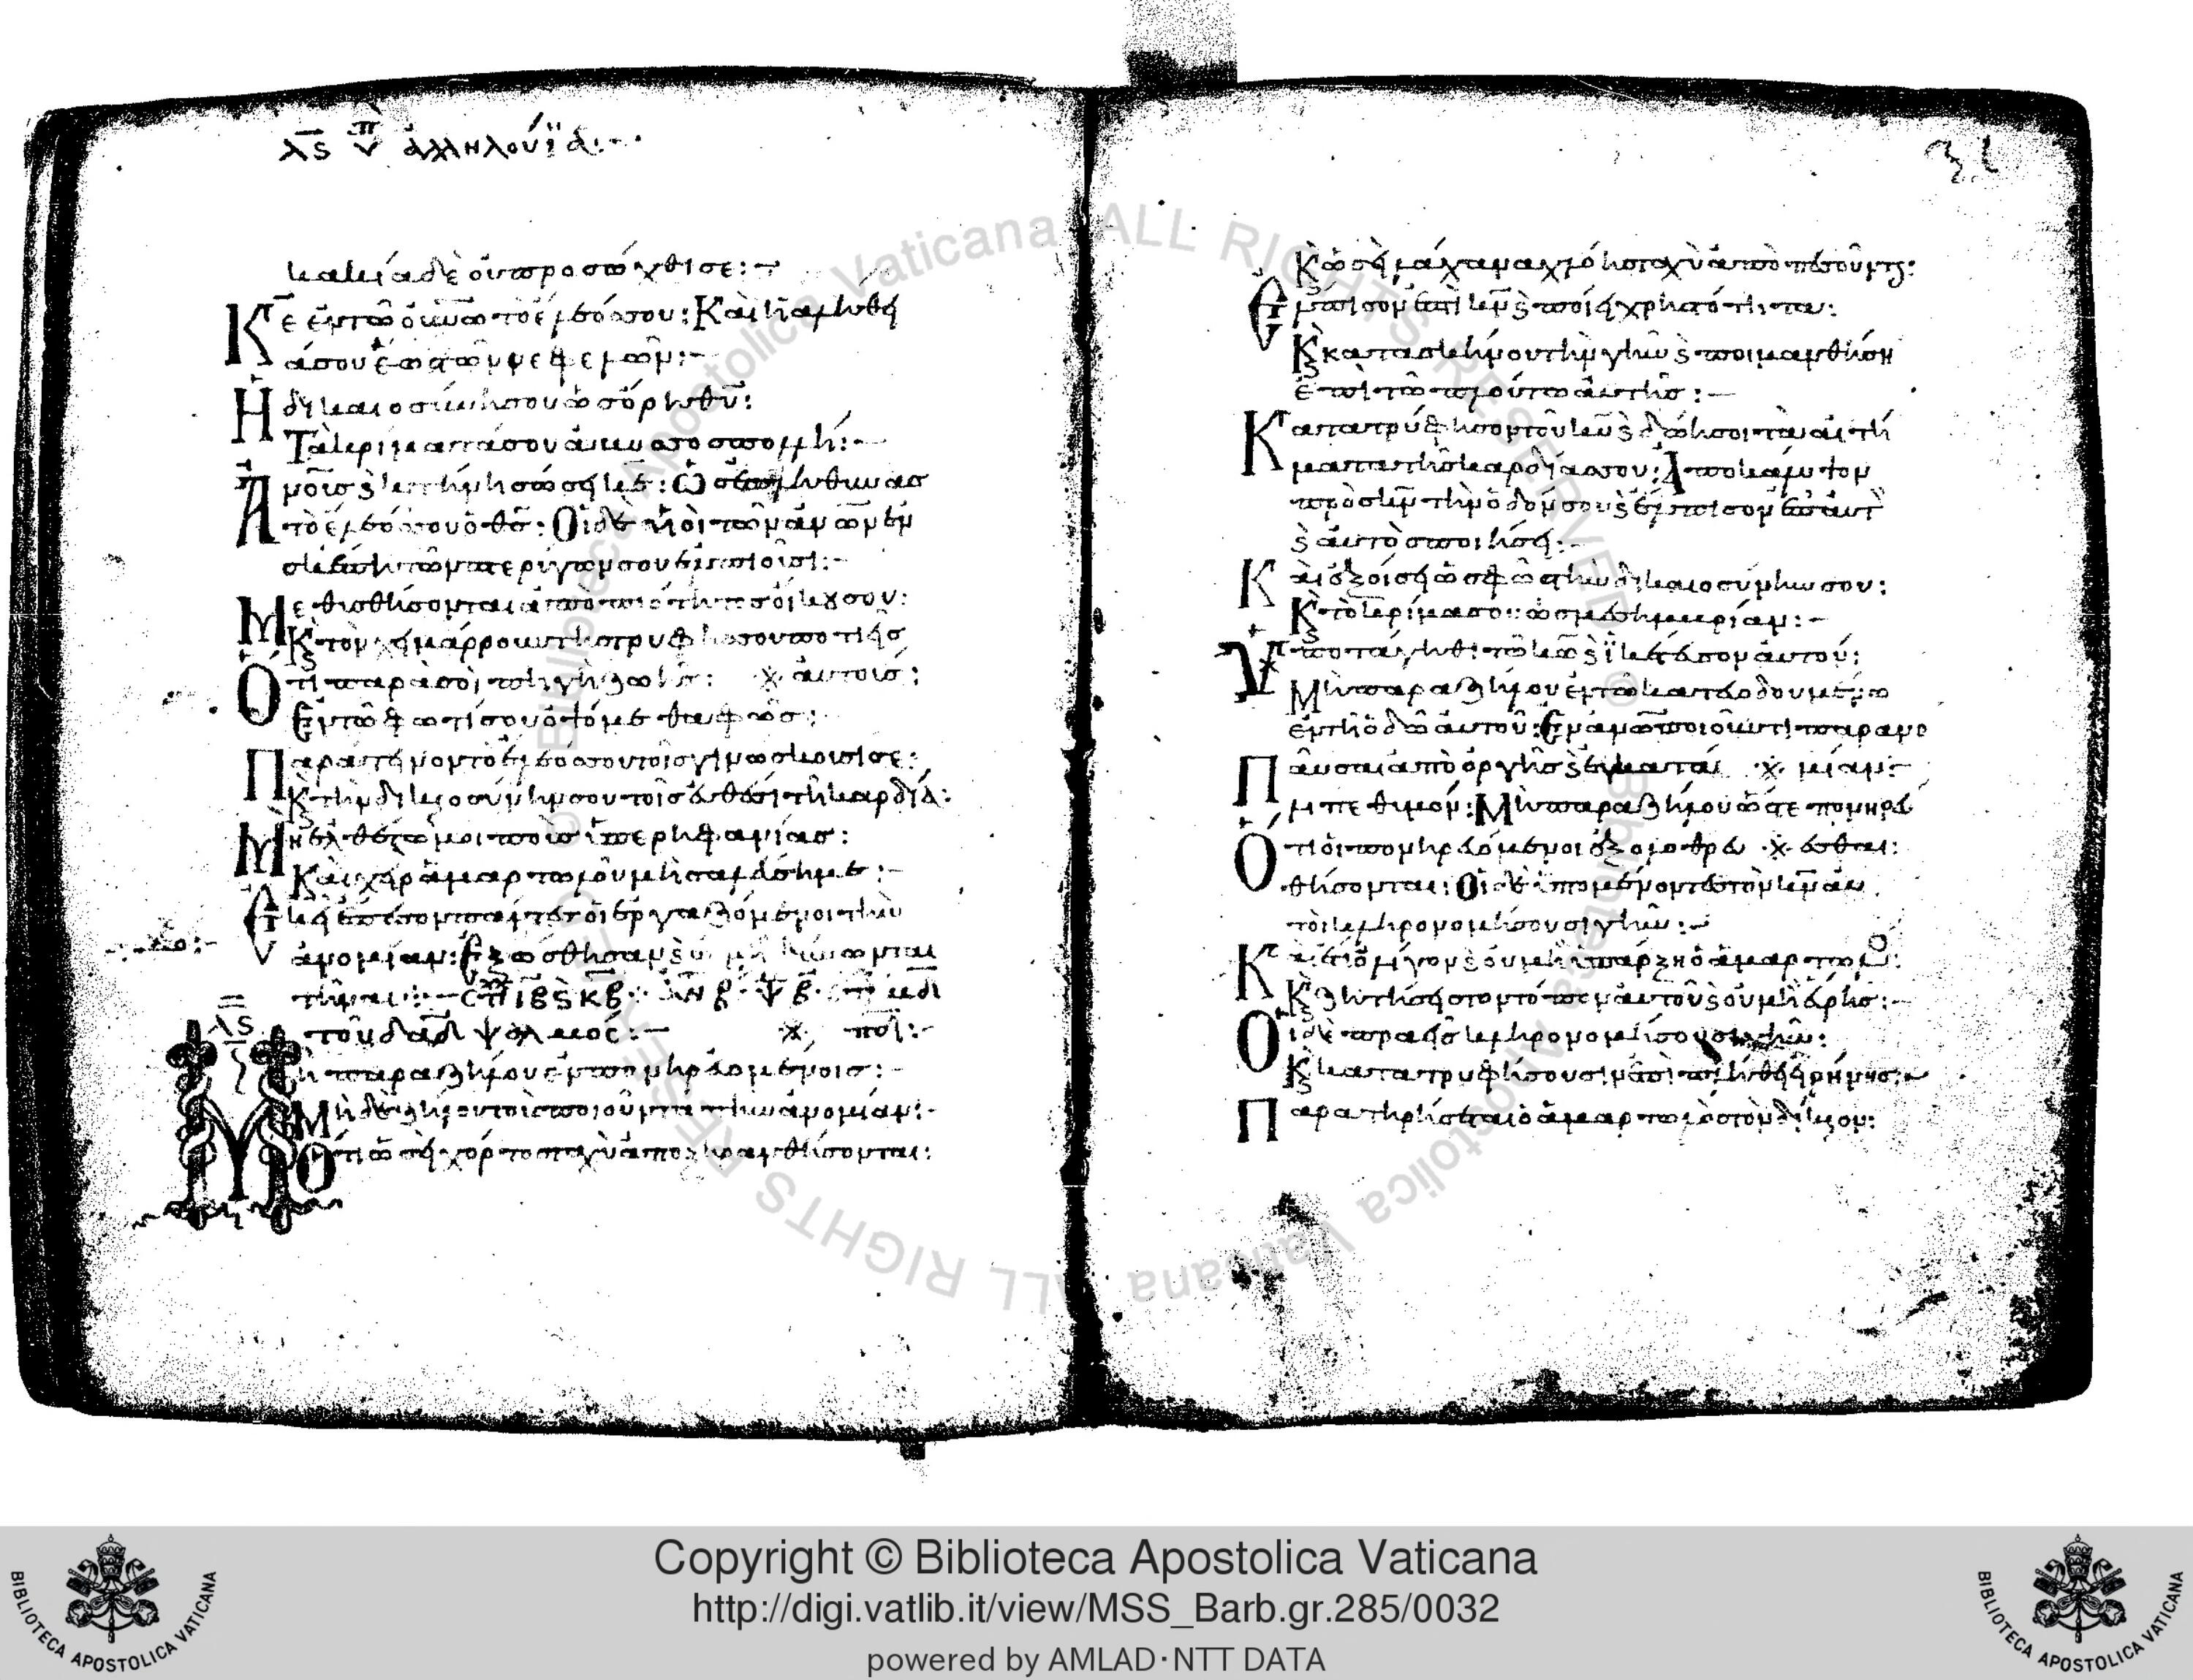 λς ἀλληλούϊα:
κακία δὲ οὐ προσώχθισε:
Κε ἐν τῶ οὐνῶ τὸ ἔλεός σου: Καὶ ἡ ἀλήθει
ά σου ἕως τῶν νεφελῶν:
Ἡ δικαιοσύνη σου ὡς ὄρη θῦ:
Τὰ κρίματά σου ἄβυσσος πολλή:
Ἀνοῖς καὶ κτήνη σώσεις κε: Ὡς ἐπλήθυνας
τὸ ἔλεός σου ὁ θς: Οἱ δὲ υἱοὶ τῶν ἀνων ἐν
σκέπη τῶν πτερύγων σου ἐλπιοῦσι:
Μεθυσθήσονται ἀπὸ πιότητος οἴκου σου:
Κ τὸν χειμάρρουν τῆς τρυφῆς σου ποτιεῖς
Ὅτι παρὰ σοὶ πηγὴ ζωῆς: αὐτούς:
Ἐν τῶ φωτί σου ὀψόμεθα φῶς:
Παράτεινον τὸ ἔλεός σου τοῖς γινώσκουσί σε:
Κ τὴν δικαιοσύνην σου τοῖς εὐθέσι τῆ καρδία:
Μὴ ἐλθέτω μοι ποὺς ὑπερηφανίας:
Καὶ χεὶρ ἁμαρτωλοῦ μὴ σαλεύση με:
Ἐκεῖ ἔπεσον πάντες οἱ ἐργαζόμενοι τὴν
ἀνομίαν: Ἐξώσθησαν καὶ οὐ μὴ δύνωνται
στῆναι:
λς τοῦ δαδ ψαλμός:
Μὴ παραζήλου ἐν πονηρευομένοις:
Μὴ δὲ ζήλου τοὺς ποιοῦντας τὴν ἀνομίαν:
Ὅτι ὡσεὶ χόρτος ταχὺ ἀποξηρανθήσονται:
31
Κ ὡσεὶ λάχανα χλόης ταχὺ ἀποπεσοῦνται:
Ἔλπισον ἐπὶ κν καὶ ποίει χρηστότητα:
Κ κατασκήνου τὴν γῆν καὶ ποιμανθήση
ἐπὶ τῶ πλούτω αὐτῆς:
Κατατρύφησον τοῦ κυ καὶ δώη σοι τὰ αἰτή
ματα τῆς καρδίας σου: Ἀποκάλυψον
πρὸς κν τὴν ὁδόν σου καὶ ἔλπισον ἐπ αὐτ
καὶ αὐτὸς ποιήσει:
Καὶ ἐξοίσει ὡς φῶς τὴν δικαιοσύνην σου:
Κ τὸ κρίμα σου ὡς μεσημβρίαν:
Ὑποτάγηθι τῶ κω καὶ ἱκέτευσον αὐτόν:
Μὴ παραζήλου ἐν τῶ κατευοδουμένω
ἐν τῆ ὁδῶ αὐτοῦ: Ἐν ανω ποιοῦντι παρανο
Παῦσαι ἀπὸ ὀργῆς καὶ ἐγκατά μίαν:
λιπε θυμόν: Μὴ παραζήλου ὥστε πονηρεύ
Ὅτι οἱ πονηρευόμενοι ἐξολοθρευ εσθαι:
θήσονται: Οἱ δὲ ὑπομένοντες τὸν κν αὐ
τοὶ κληρονομήσουσι γῆν:
Καὶ ἔτι ὀλίγον καὶ οὐ μὴ ὑπάρξη ὁ ἁμαρτωλός:
Κ ζητήσεις τὸν τόπον αὐτοῦ καὶ οὐ μὴ εὕρης:
Οἱ δὲ πραεῖς κληρονομήσουσι γῆν:
Κ κατατρυφήσουσιν ἐπὶ πλήθει εἰρήνης:
Παρατηρήσεται ὁ ἁμαρτωλὸς τὸν δίκαιον:
Copyright © Biblioteca Apostolica Vaticana
http://digi.vatlib.it/view/MSS_Barb.gr.285/0032
powered by AMLAD·NTT DATA